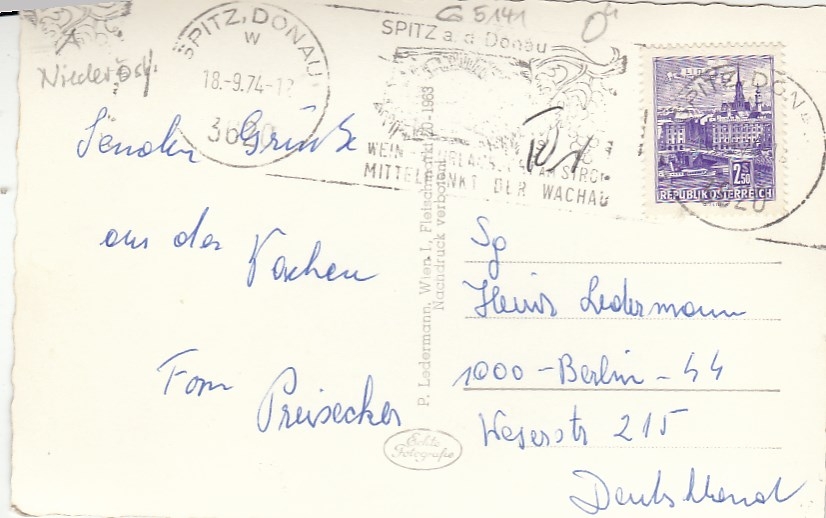 G 5141
SPITZ, DONAU
W
18.-9.74-1
3620
SPITZ a. d. Donau
WEIN - URLAUB AM STROM
MITTELPUNKT DER WACHAU
Niederöst.
2 S 50
REPUBLIK ÖSTERREICH
SPITZ, DON
620
Senden Grüße
aus der
Wachau
Fam Preisecker
P. Ledermann, Wien I., Fleischmarkt 20 - 1963
Nachdruck verboten
Echte
Fotografie
Sg
Heinz Ledermann
1000 - Berlin - 44
Weserstr 215
Deutschland